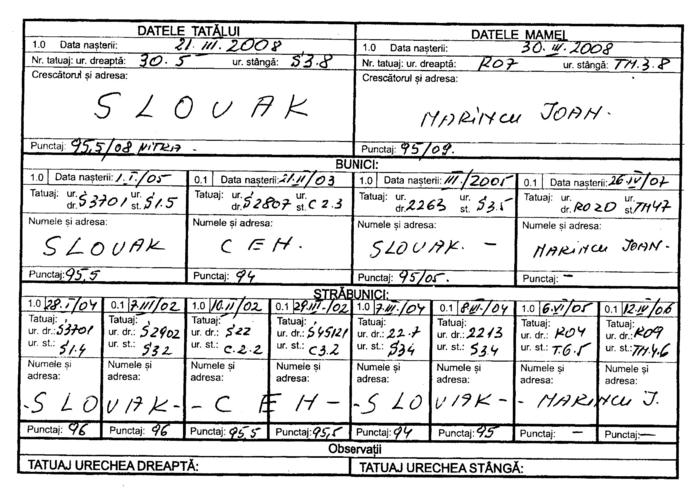 DATELE TATĂLUI DATELE MAMEI
1.0 Data nașterii: 21. III. 2008 1.0 Data nașterii: 30. III. 2008
Nr. tatuaj: ur. dreaptă: 30. 5 ur. stângă: S3.8 Nr. tatuaj: ur. dreaptă: RO7 ur. stângă: TM.3.8
Crescătorul și adresa: Crescătorul și adresa:
SLOVAK MARINCU IOAN.
Punctaj: 95,5/08 NITRIA. Punctaj: 95/09.
BUNICI:
1.0 Data nașterii: 1. I. /05 0.1 Data nașterii: 21.II/03 1.0 Data nașterii: III/2005 0.1 Data nașterii: 26.IV/07
Tatuaj: ur. dr. S3701 ur. st. S1.5 Tatuaj: ur. dr. S2807 ur. st. C2.3 Tatuaj: ur. dr. 2263 ur. st. S3.5 Tatuaj: ur. dr. RO20 ur. st. TM47
Numele și adresa: Numele și adresa: Numele și adresa: Numele și adresa:
SLOVAK CEH. SLOVAK. - MARINCU IOAN.
Punctaj: 95.5 Punctaj: 94 Punctaj: 95/05. Punctaj: -
STRĂBUNICI:
1.0 28. I /04 0.1 7.III/02 1.0 10.II/02 0.1 29.III./02 1.0 7.III./04 0.1 8.III/04 1.0 6.VI/05 0.1 12.IV/06
Tatuaj: Tatuaj: Tatuaj: Tatuaj: Tatuaj: Tatuaj: Tatuaj: Tatuaj:
ur. dr.: S3701 ur. dr.: S2902 ur. dr.: S22 ur. dr.: S45121 ur. dr.: 22.7 ur. dr.: 2213 ur. dr.: RO4 ur. dr.: RO9
ur. st.: S1.4 ur. st.: S32 ur. st.: C.2.2 ur. st.: C3.2 ur. st.: S34 ur. st.: S34 ur. st.: T.G.5 ur. st.: TM.4.6
Numele și Numele și Numele și Numele și Numele și Numele și Numele și Numele și
adresa: adresa: adresa: adresa: adresa: adresa: adresa: adresa:
-SLOVAK- -CEH- -SLOVAK- -MARINCU I.
Punctaj: 96 Punctaj: 96 Punctaj: 95,5 Punctaj: 95,5 Punctaj: 94 Punctaj: 95 Punctaj: - Punctaj: -
Observații
TATUAJ URECHEA DREAPTĂ: TATUAJ URECHEA STÂNGĂ: